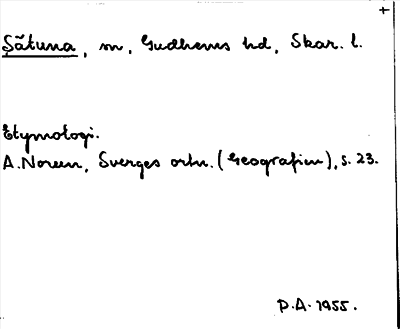 +
Såtuna, m, Gudhems hd, Skar. l.
Etymologi.
A. Noreen, Sverges ortn. (Geografien), s. 23.
P.A. 1955.